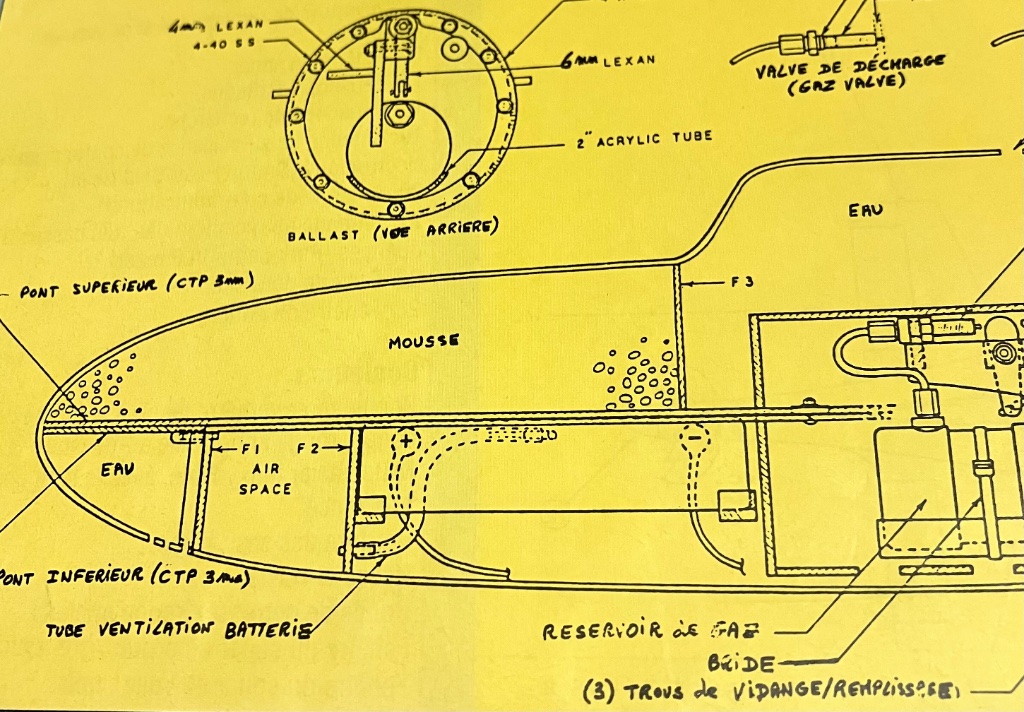 4mm LEXAN
4-40 SS
6mm LEXAN
2" ACRYLIC TUBE
BALLAST (VUE ARRIERE)
VALVE DE DÉCHARGE
(GAZ VALVE)
EAU
PONT SUPERIEUR (CTP 3mm)
F3
MOUSSE
+
-
F1
F2
AIR
SPACE
EAU
PONT INFERIEUR (CTP 3mm)
TUBE VENTILATION BATTERIE
RESERVOIR de GAZ
BRIDE
(3) TROUS de VIDANGE/REMPLISSAGE